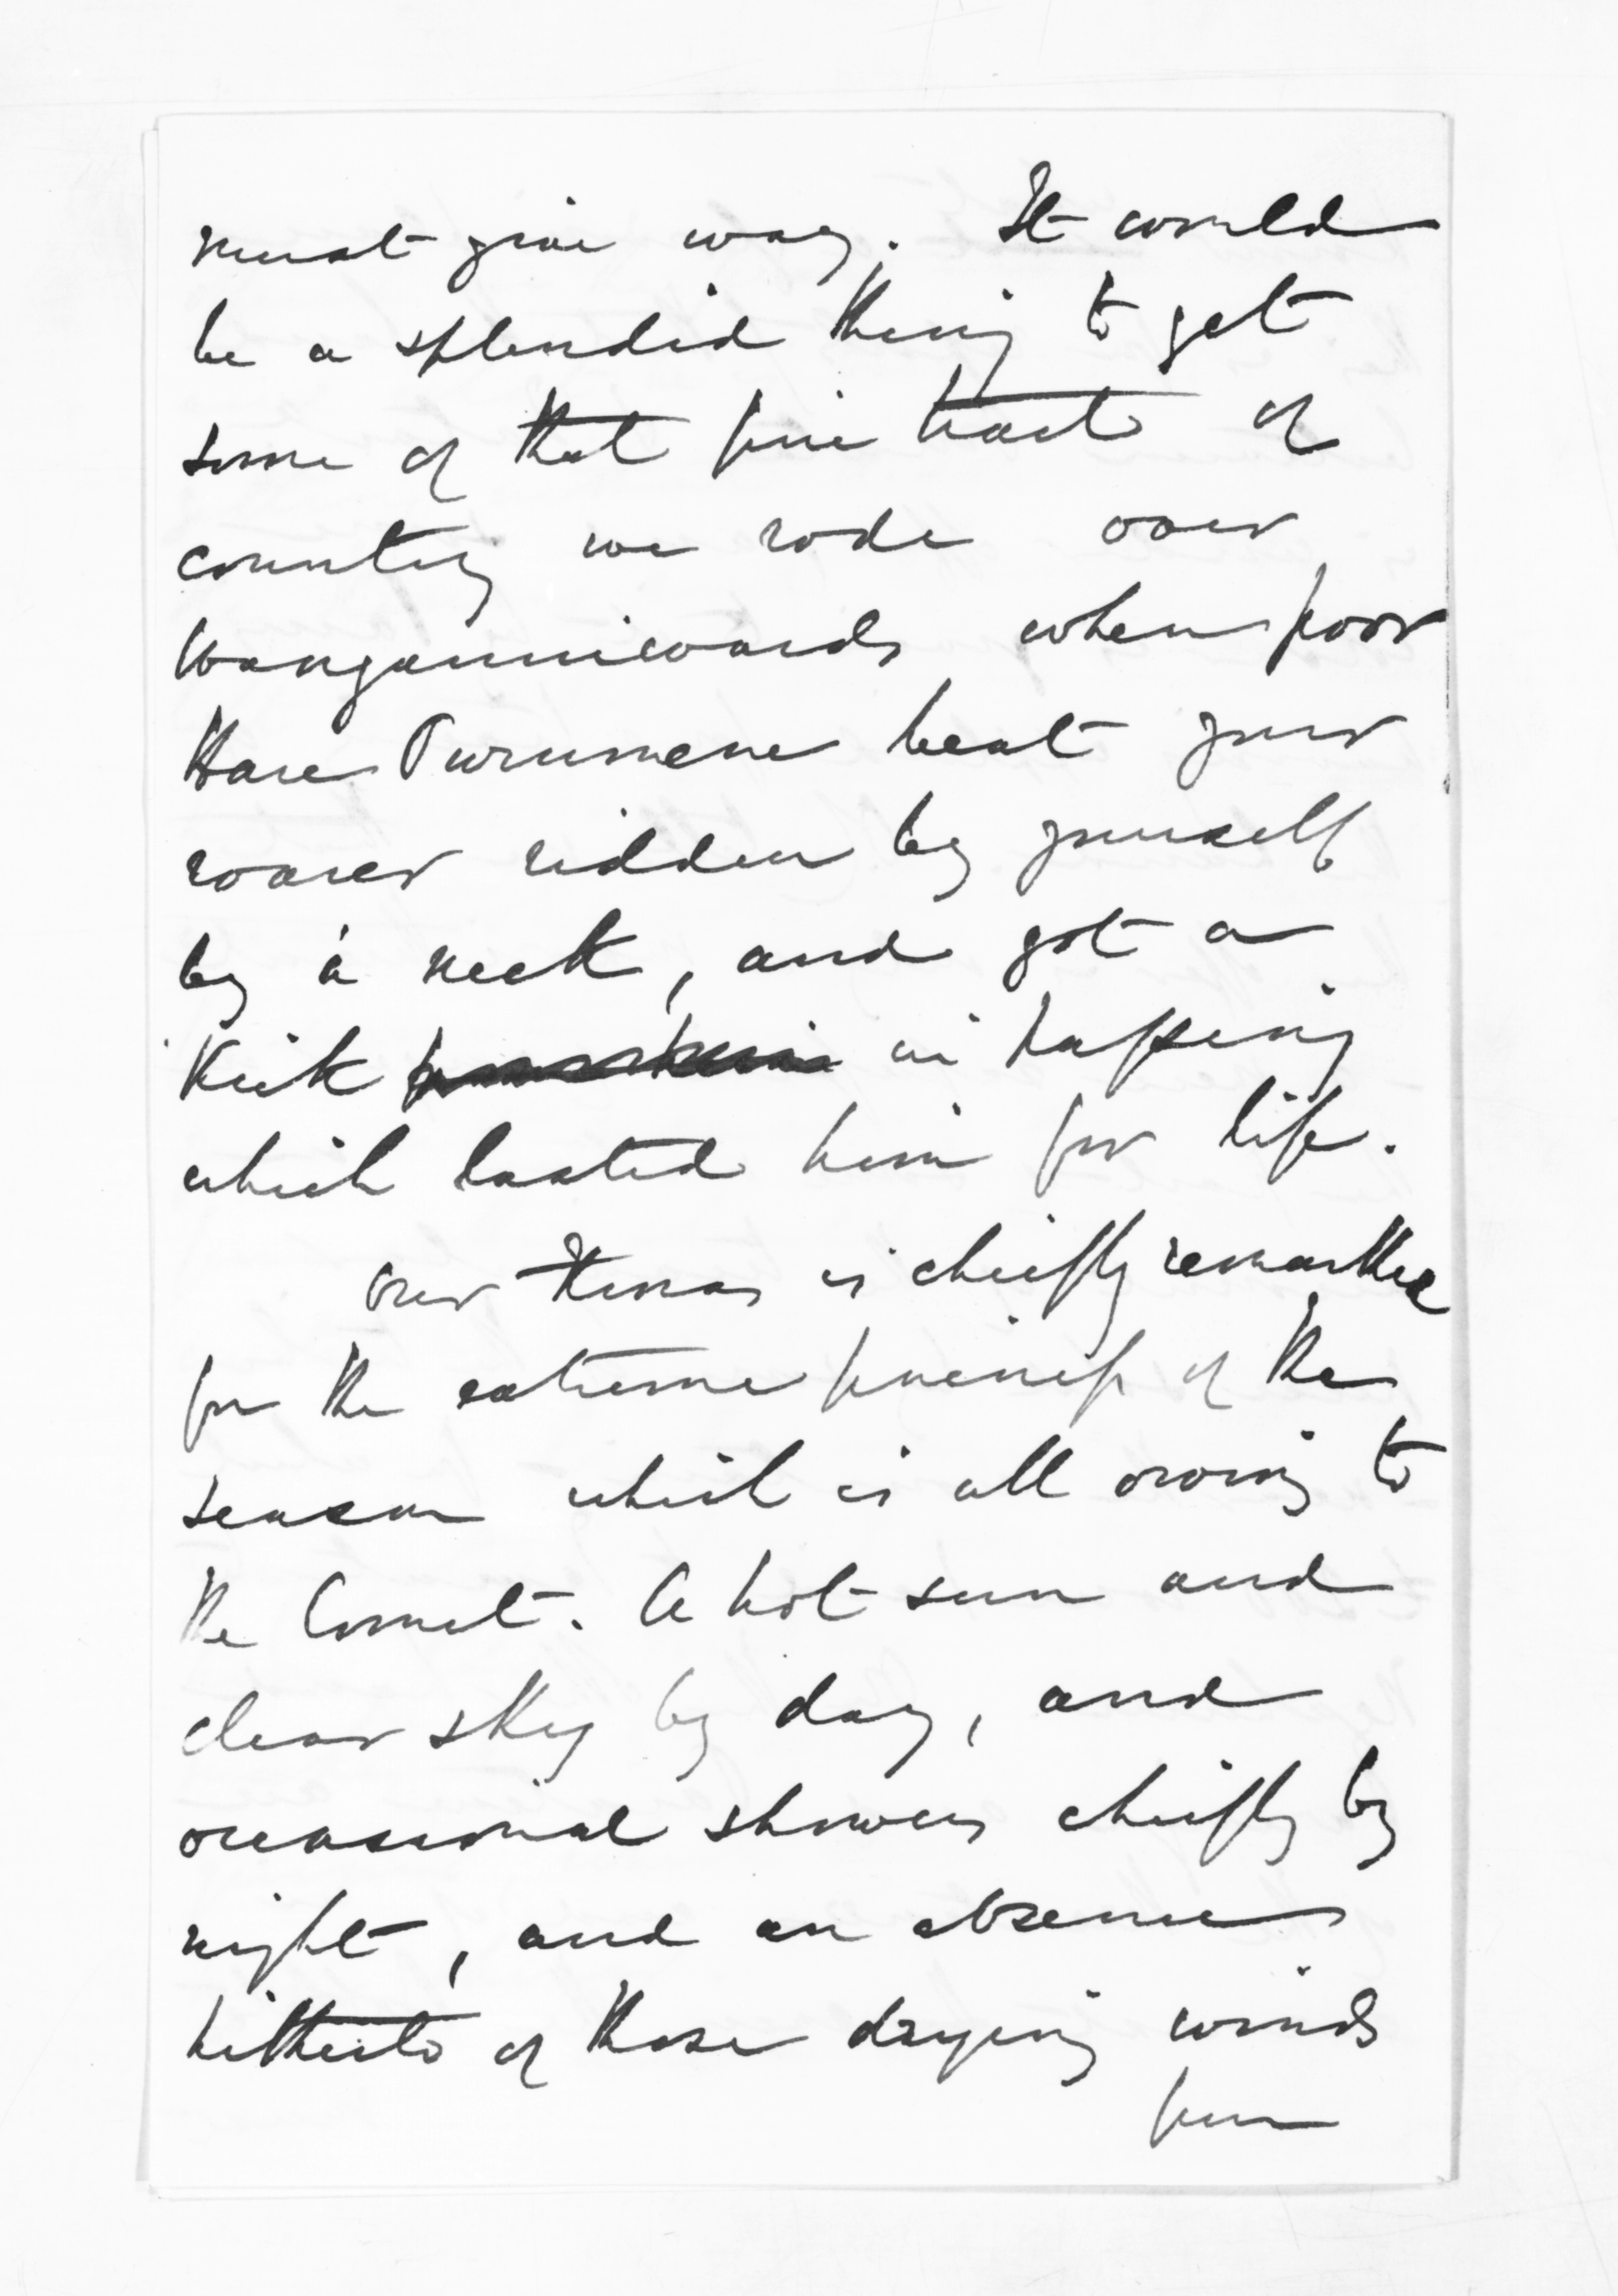 must give way. It would
be a splendid thing to get
some of that fine tract of
country we rode over
Wanganuiwards when poor
Hare Purumene beat your
roarer ridden by yourself
by a neck, and got a
kick in passing
which lasted him for life.
Our Xmas is chiefly remarkble
for the extreme fineness of the
season which is all owing to
the Comet. A hot sun and
clear sky by day, and
occasional showers chiefly by
night, and an absence
hitherto of those drying winds
from